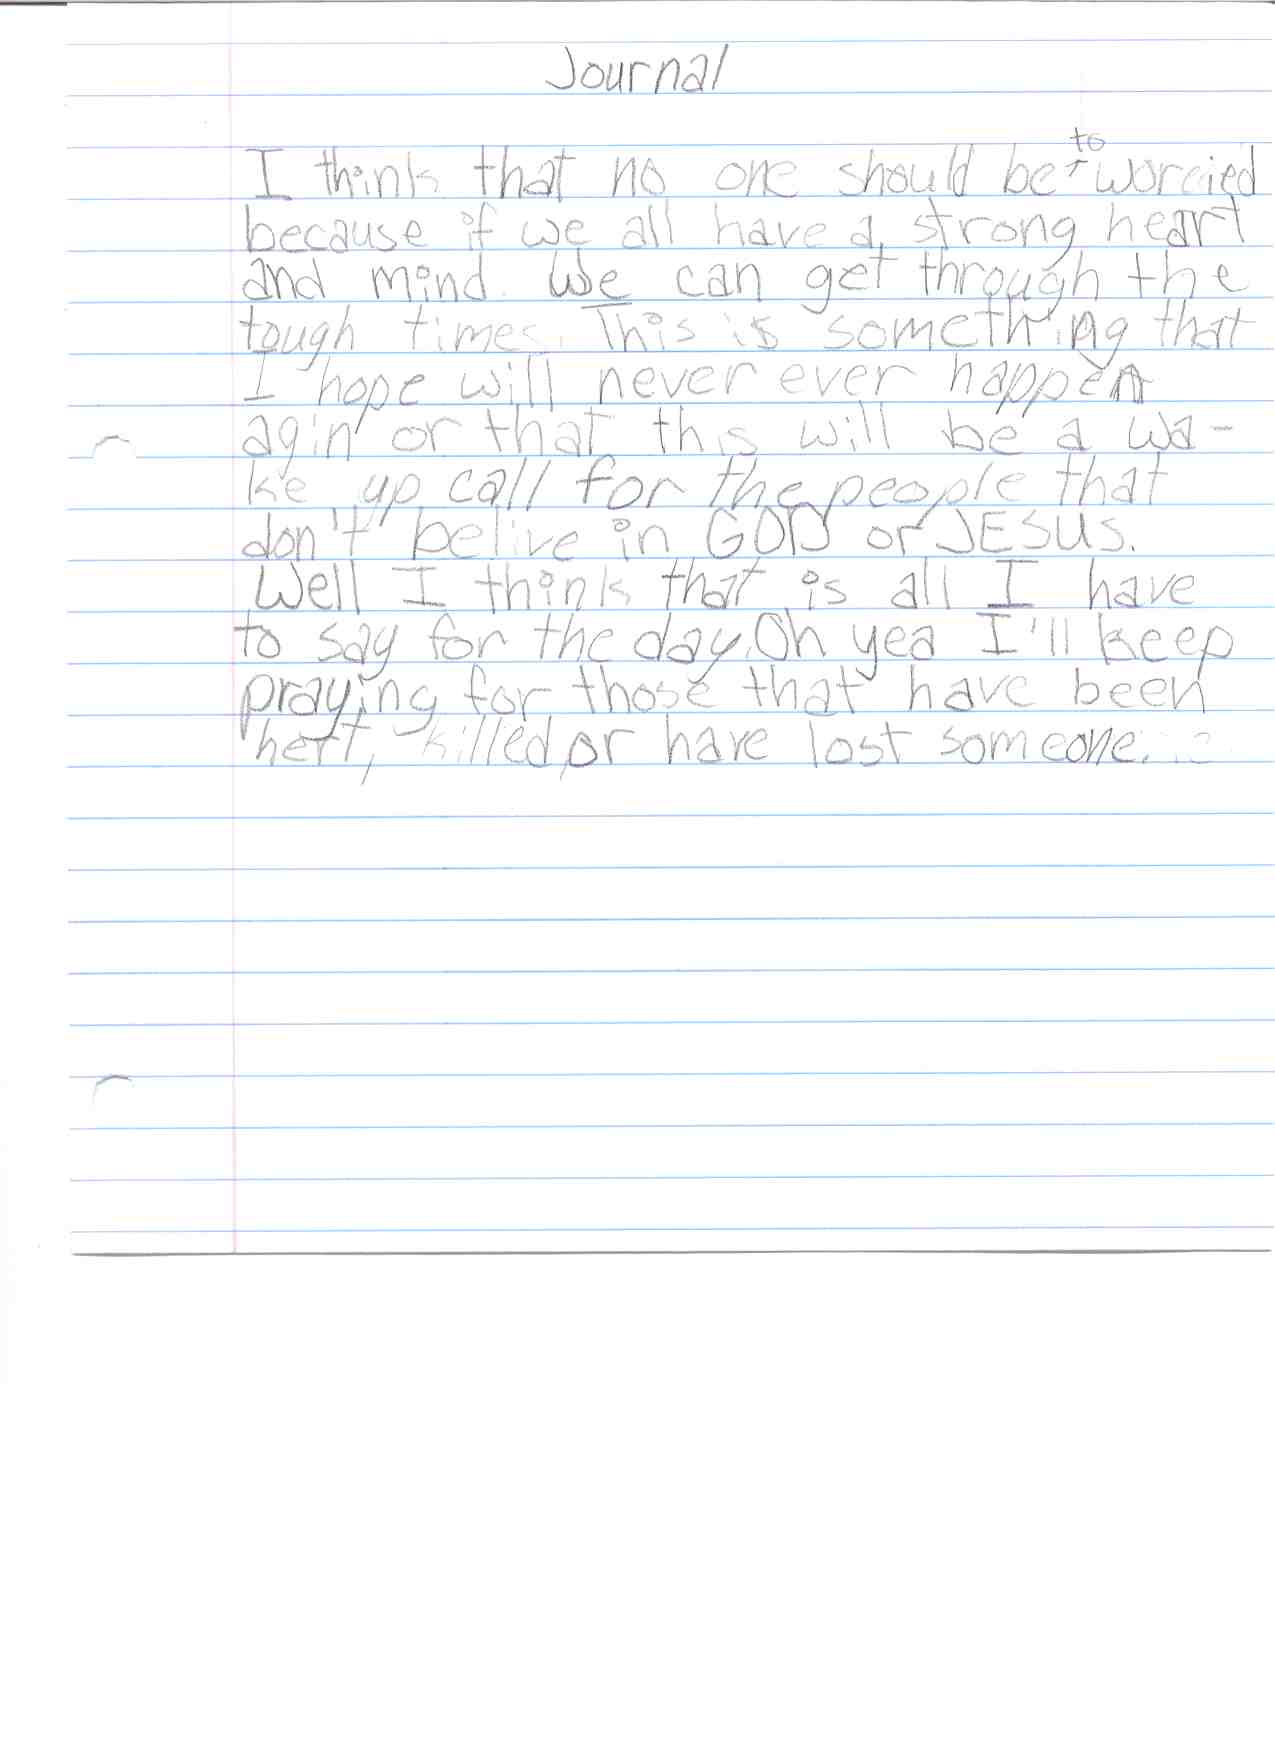 Journal
I think that no one should be to worried
because if we all have a strong heart
and mind. We can get through the
tough times. This is something that
I hope will never ever happen
agin or that this will be a wa-
ke up call for the people that
don't belive in GOD or JESUS.
Well I think that is all I have
to say for the day. Oh yea I'll keep
praying for those that have been
hert, killed, or have lost someone.